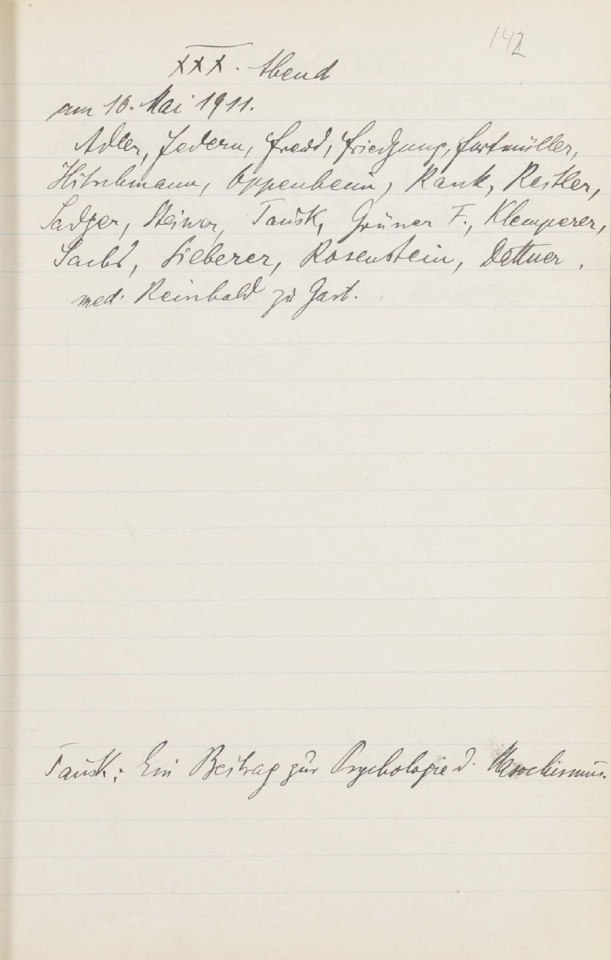 142
XXX. Abend
am 10. Mai 1911.
Adler, Federn, Freud, Friedjung, Furtmüller,
Hitschmann, Oppenheim, Rank, Reitler,
Sadger, Steiner, Tausk, Grüner F., Klemperer,
Sachs, Silberer, Rosenstein, Dattner.
med. Reinhold zu Gast.
Tausk: Ein Beitrag zur Psychologie d. Masochismus.